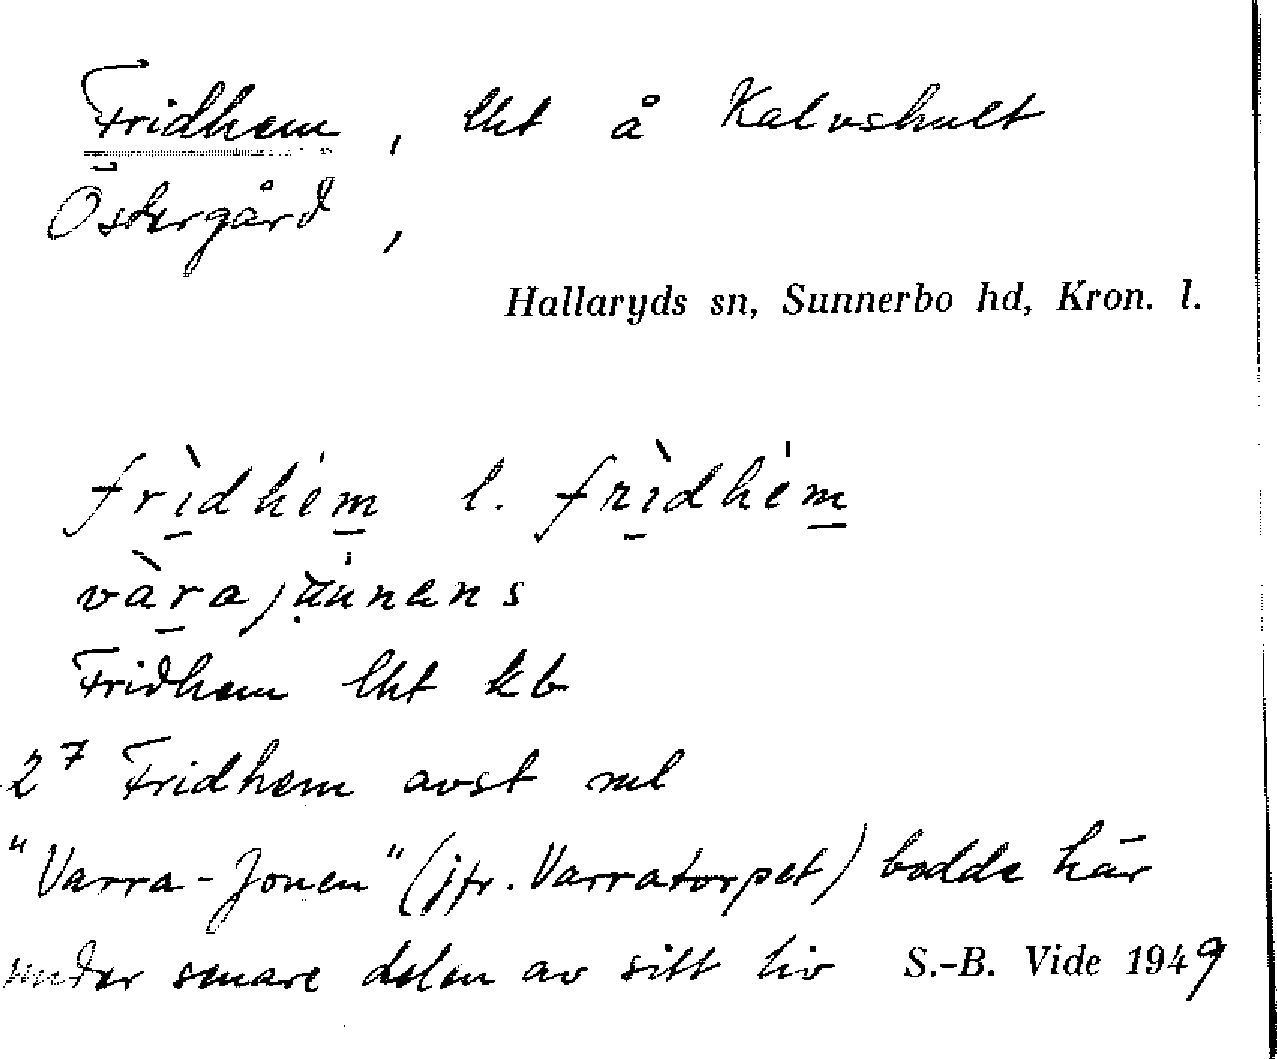 Fridhem, lht å Kalvshult
Östergård,
Hallaryds sn, Sunnerbo hd, Kron. l.
frìdhém l. frìdhém
Fridhem lht kb
2⁷ Fridhem avst ml
"Varra-Jonen" (jfr. Varratorpet) bodde här
under senare delen av sitt liv S.-B. Vide 1949